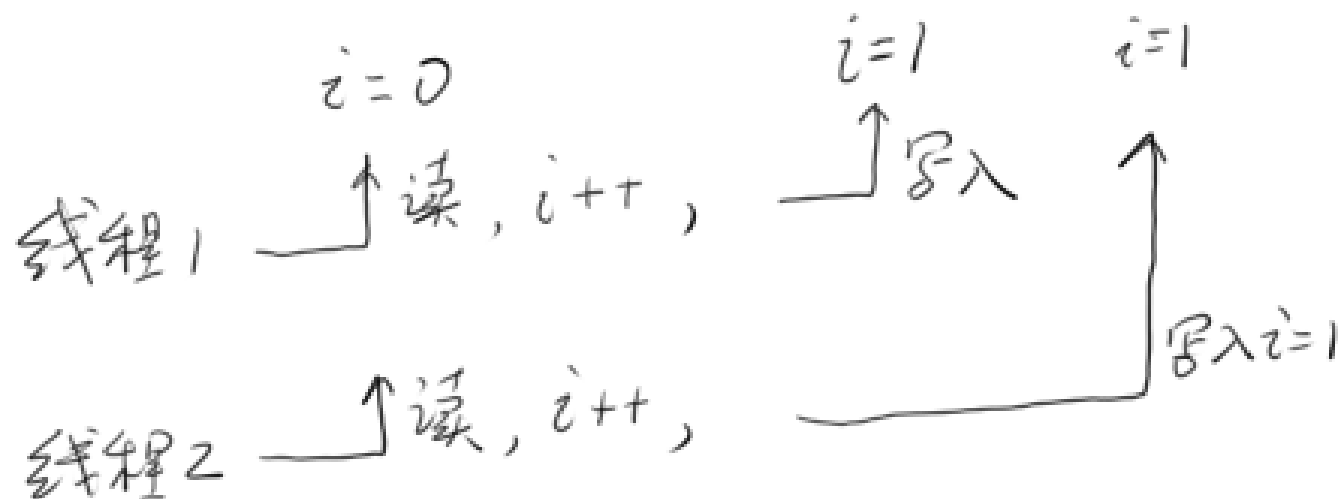 i=0 i=1 i=1
线程1 读, i++, 写入
写入i=1
线程2 读, i++,